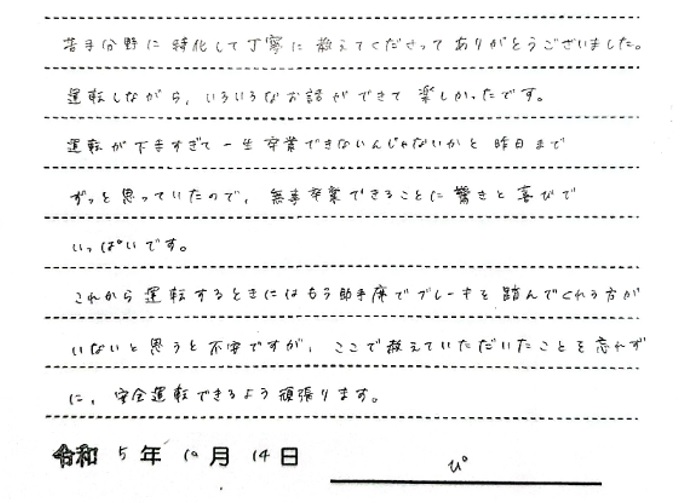 苦手分野に特化して丁寧に教えてくださってありがとうございました。
運転しながら、いろいろなお話ができて楽しかったです。
運転が下手すぎて一生卒業できないんじゃないかと昨日まで
ずっと思っていたので、無事卒業できることに驚きと喜びで
いっぱいです。
これから運転するときにはもう助手席でブレーキを踏んでくれる方が
いないと思うと不安ですが、ここで教えていただいたことを忘れず
に、安全運転できるよう頑張ります。
令和 5 年 10 月 14 日 ぴ